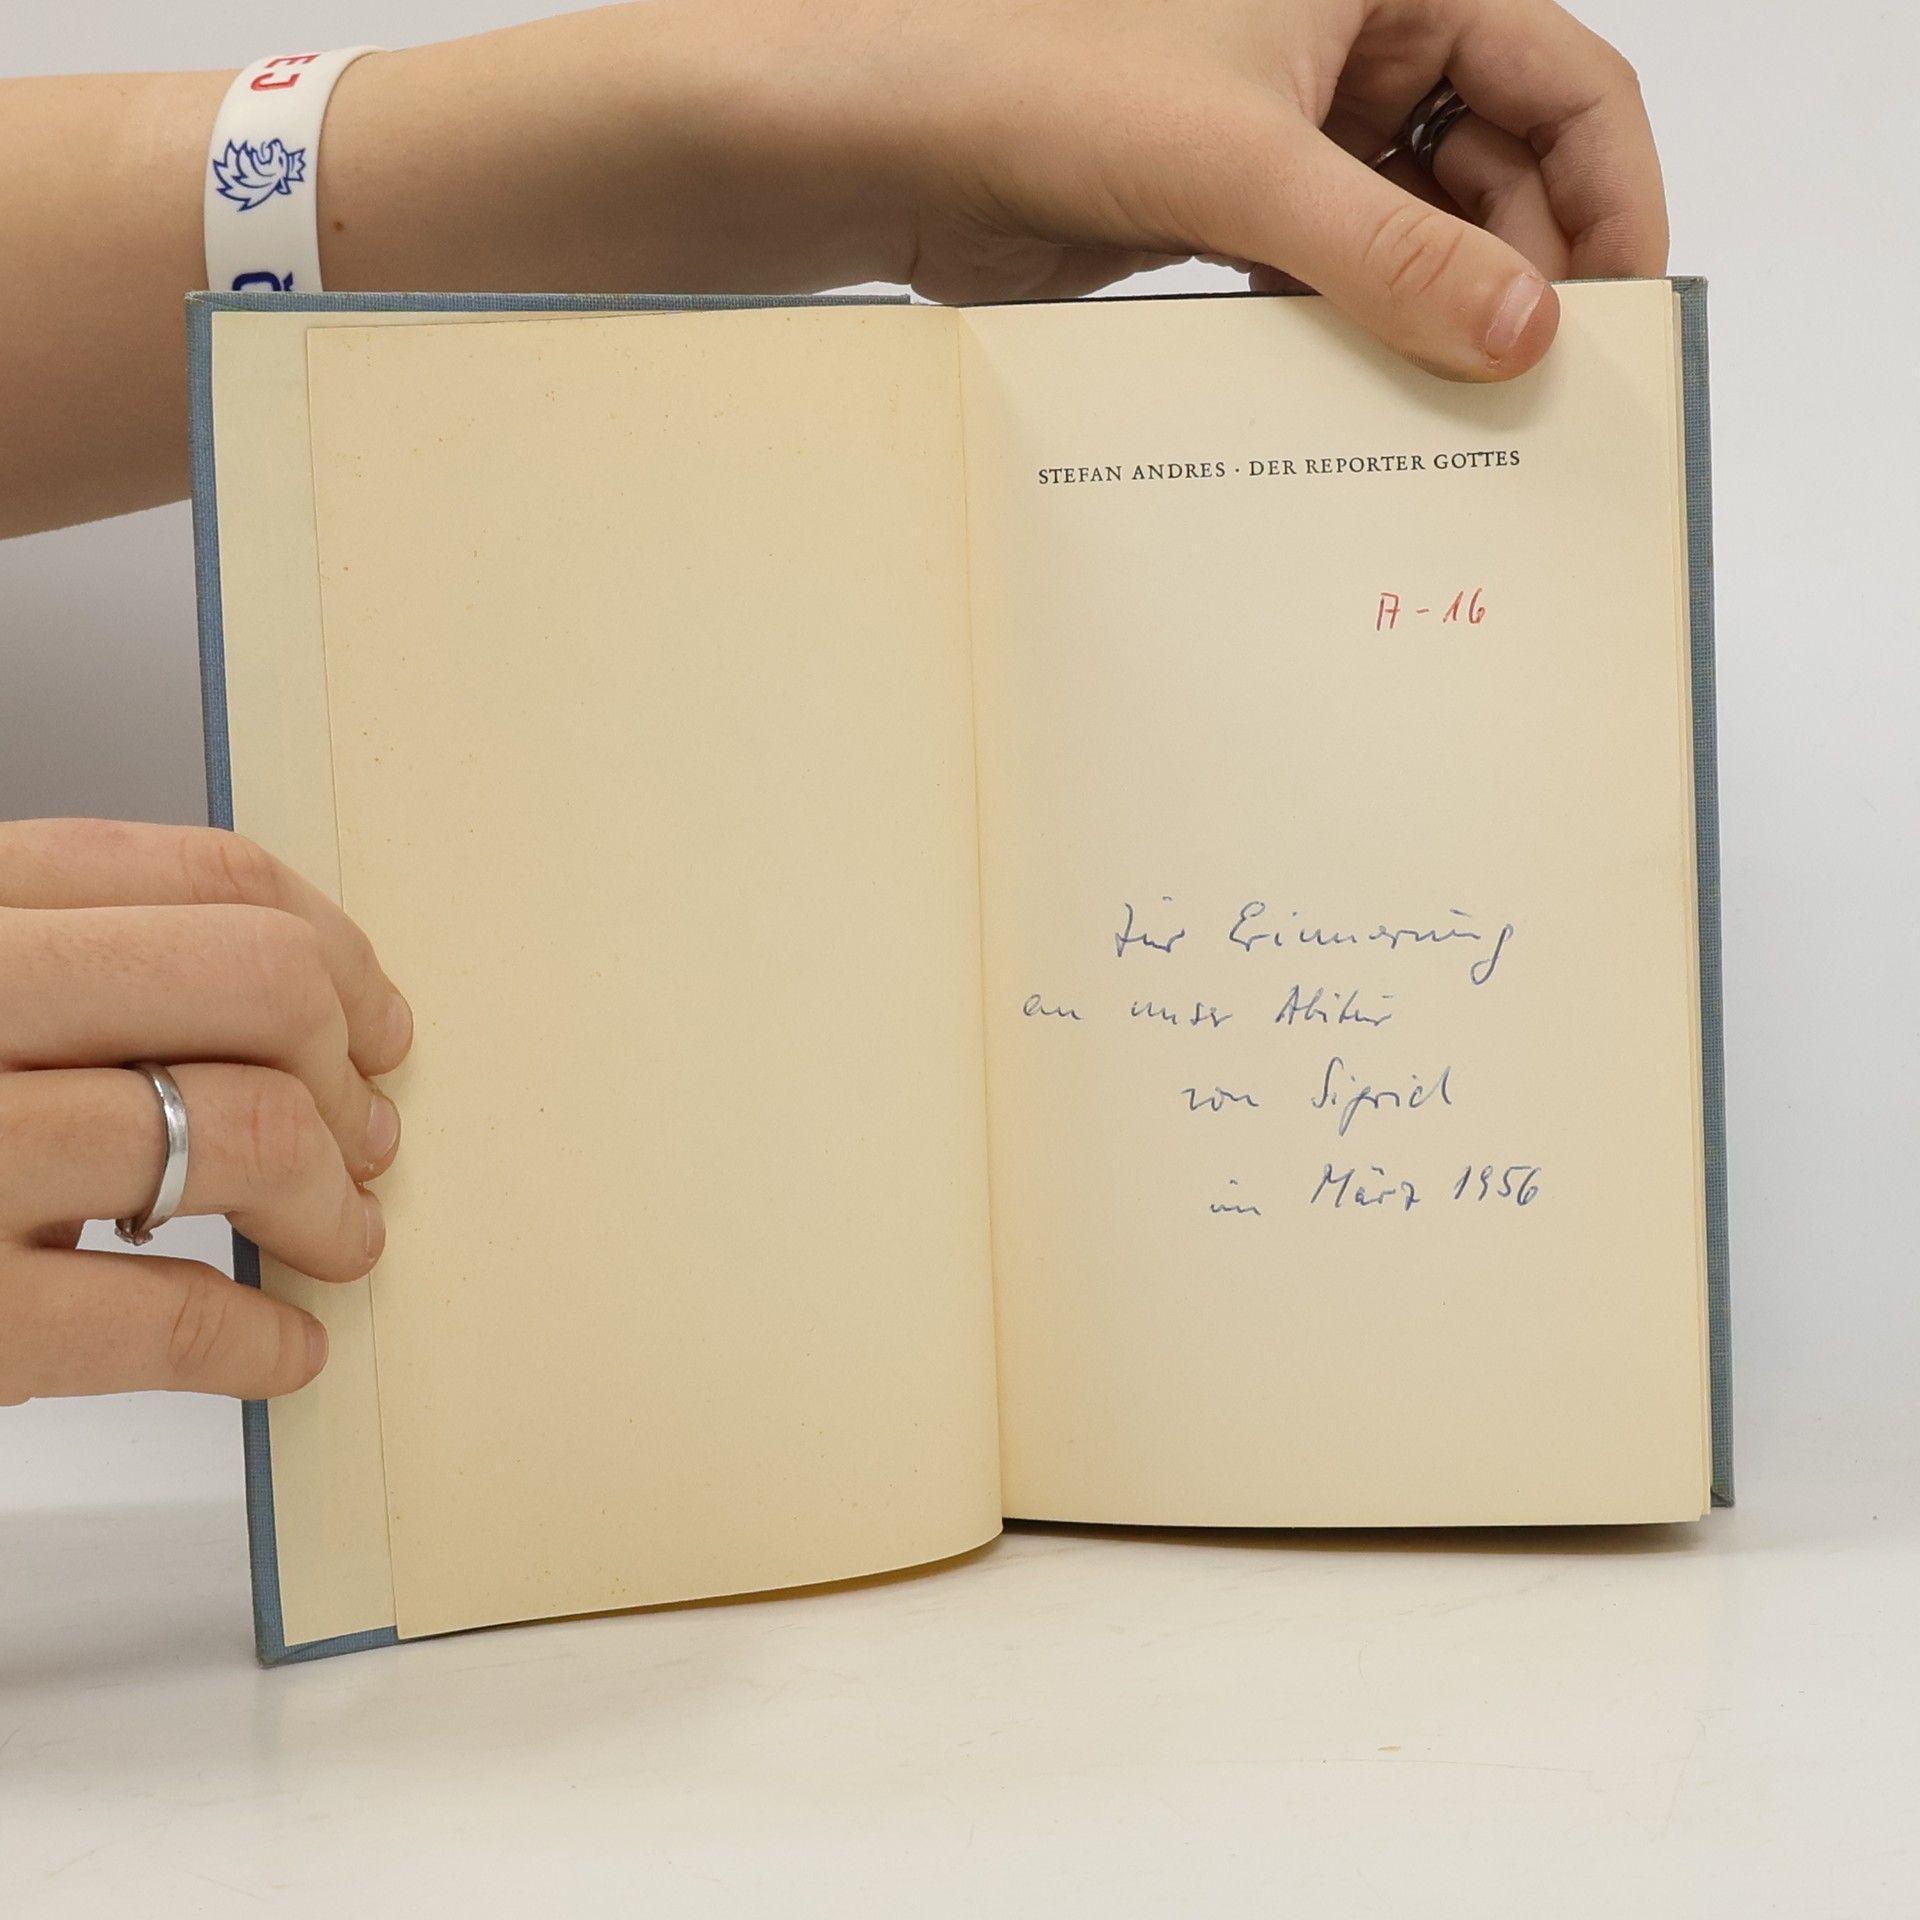 EJ
STEFAN ANDRES · DER REPORTER GOTTES
A - 16
Zur Erinnerung
an unser Abitur
von Sigrid
im März 1956